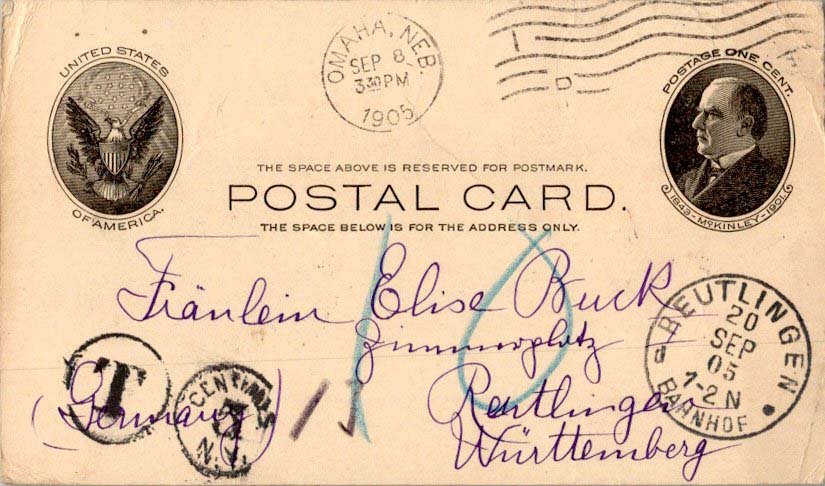 UNITED STATES
OF AMERICA.
OMAHA, NEB.
SEP 8
330PM
1905
D
POSTAGE ONE CENT.
1843-McKINLEY-1901
THE SPACE ABOVE IS RESERVED FOR POSTMARK.
POSTAL CARD.
THE SPACE BELOW IS FOR THE ADDRESS ONLY.
Fräulein Elise Buck
Zimmerplatz
Reutlingen
Württemberg
(Germany)
10
T
CENTIMES
5
N.Y.
REUTLINGEN
20
SEP
05
1-2N
BAHNHOF